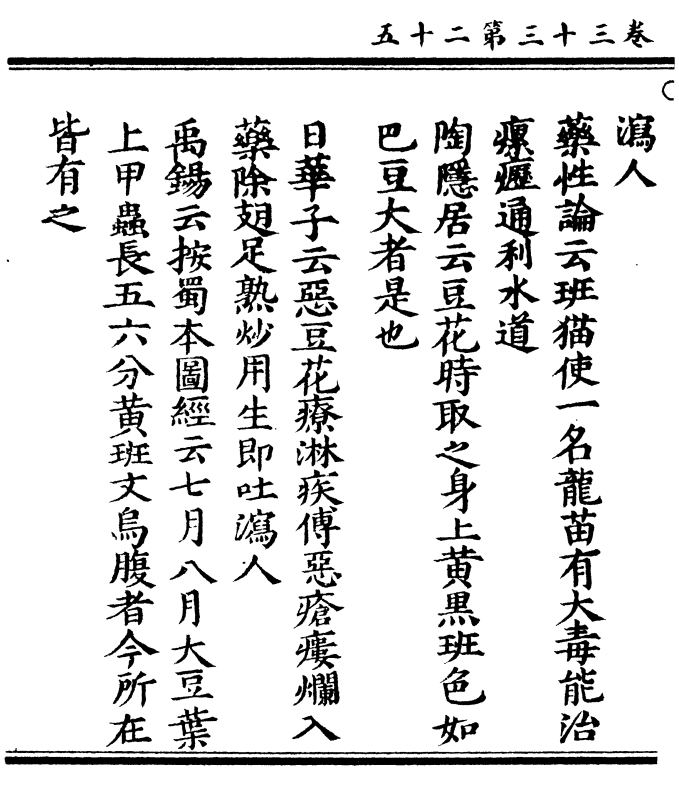 卷三十三第二十五
瀉人
藥性論云班猫使一名龍苗有大毒能治
瘰癧通利水道
陶隱居云豆花時取之身上黄黒班色如
巴豆大者是也
日華子云惡豆花療淋疾傅惡瘡瘻爛入
藥除翅足熟炒用生即吐瀉人
禹錫云按蜀本圖經云七月八月大豆葉
上甲蟲長五六分黄班文烏腹者今所在
皆有之